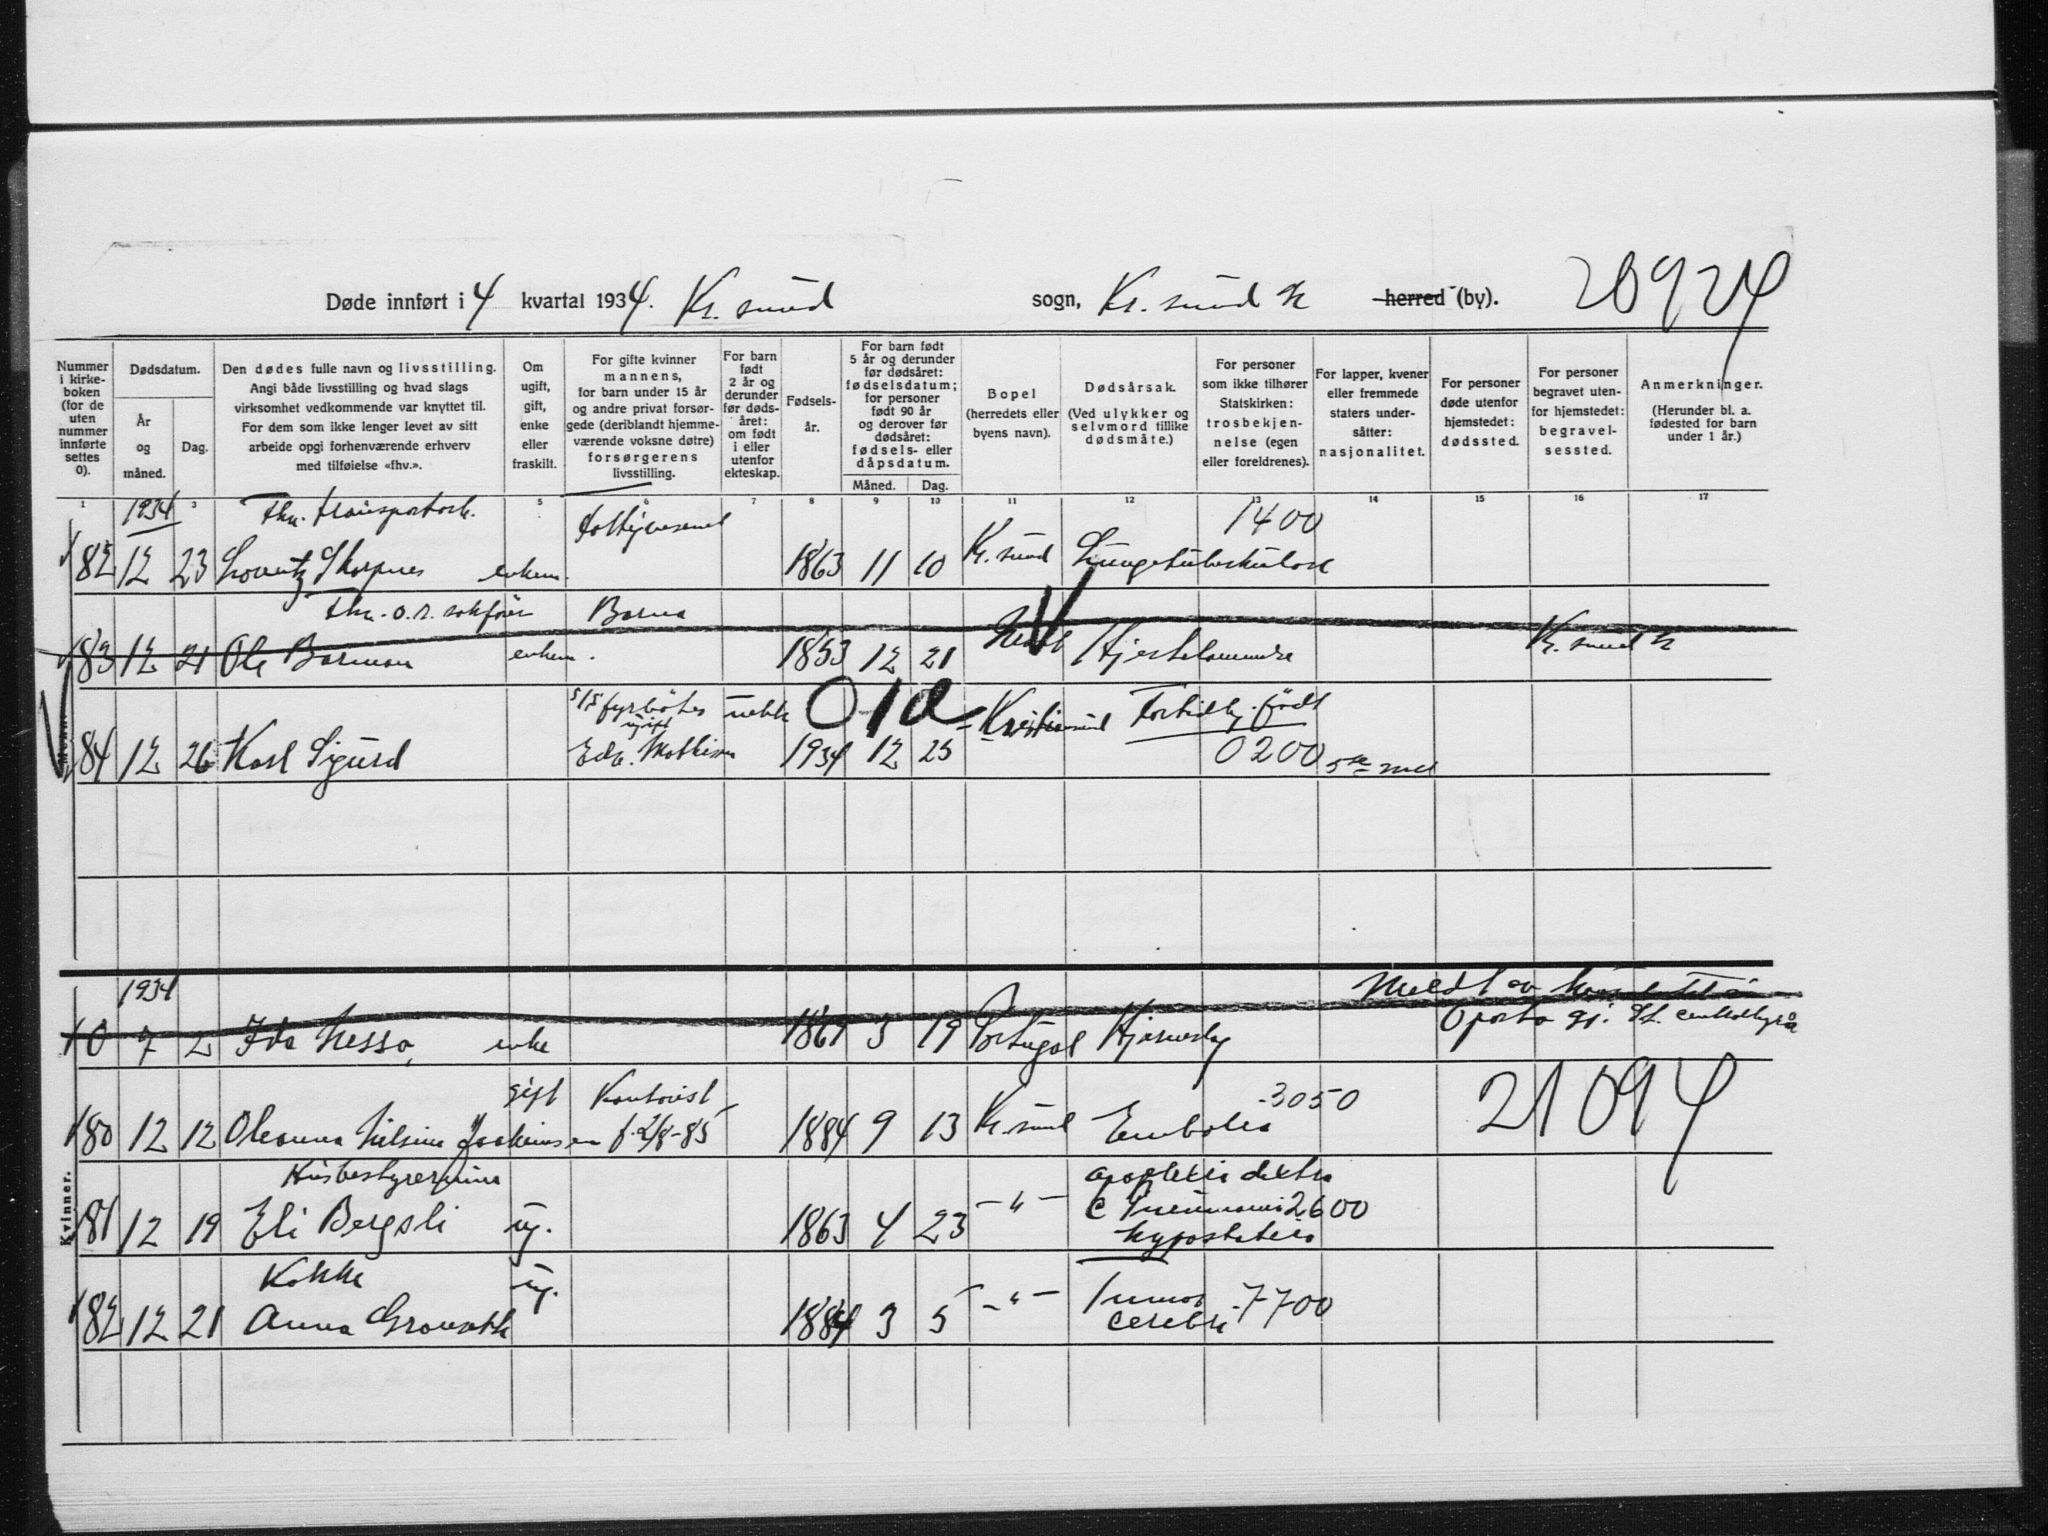 Døde innført i 4 kvartal 1934. Kr. sund sogn, Kr. sund N herred (by). 20924
Nummer i kirkeboken (for de uten nummer innførte settes 0).
Dødsdatum.
År og måned.
Dag.
Den dødes fulle navn og livsstilling.
Angi både livsstilling og hvad slags
virksomhet vedkommende var knyttet til.
For dem som ikke lenger levet av sitt
arbeide opgi forhenværende erhverv
med tilføielse «fhv.».
Om ugift, gift, enke eller fraskilt.
For gifte kvinner
mannens,
for barn under 15 år
og andre privat forsør-
gede (deriblandt hjemme-
værende voksne døtre)
forsørgerens
livsstilling.
For barn født 2 år og derunder før døds-året: om født i eller utenfor ekteskap.
Fødsels-år.
For barn født
5 år og derunder
før dødsåret:
fødselsdatum;
for personer
født 90 år
og derover før
dødsåret:
fødsels- eller
dåpsdatum.
Måned. Dag.
Bopel
(herredets eller
byens navn).
Dødsårsak.
(Ved ulykker og
selvmord tillike
dødsmåte.)
For personer
som ikke tilhører
Statskirken:
trosbekjen-
nelse (egen
eller foreldrenes).
For lapper, kvener
eller fremmede
staters under-
såtter:
nasjonalitet.
For personer
døde utenfor
hjemstedet:
dødssted.
For personer
begravet uten-
for hjemstedet:
begravel-
sessted.
Anmerkninger.
(Herunder bl. a.
fødested for barn
under 1 år.)
1 3 5 6 7 8 9 10 11 12 13 14 15 16 17
Menn.
1934 fhv. transportark. 1400
82 12 23 Lorentz Skorpnes enkem. 1863 11 10 Kr. sund Lungetuberkulose
fhv. o.r. sakfører
83 12 21 Ole Barman enkem. 1853 12 21 Hjertelammelse Kr. sund N
s/s fyrbøter uekte 010 Kristiansund For tidlig født
ugift
84 12 26 Karl Sigurd Edv. Mathisen 1934 12 25 0200
Kvinner.
1934 Meldt av
0 7 2 Ida Nesso, enke 1869 3 19 Portugal Hjerneslag Oporto gj. St. centralbyrå
gift Kontorist 3050 21094
80 12 12 Oleanna Nilsine Joakimsen f. 2/8-85 1884 9 13 Kr. sund Emboli
Husbestyrerinne apoplexia dextra
81 12 19 Eli Bergsli ug. 1863 4 23 -"- c Pneumoni 2600
hypostatica
Kokke ug.
82 12 21 Anna Gronvikk 1884 3 5 -"- Tumor 7700
cerebri